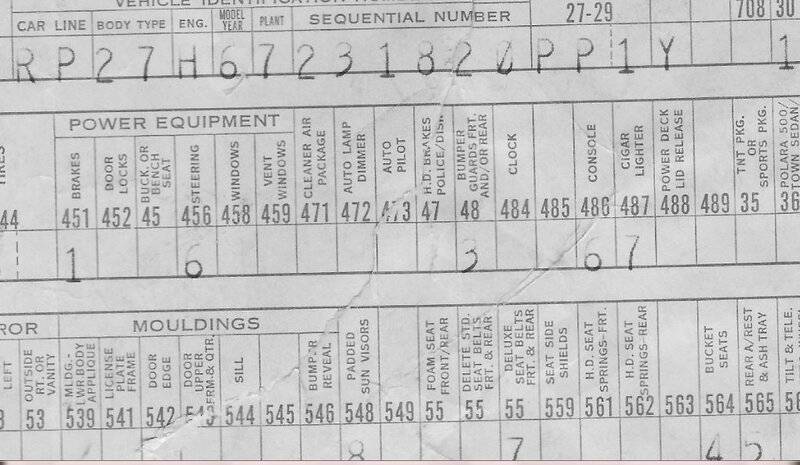 VEHICLE IDENTIFICATION
CAR LINE BODY TYPE ENG. MODEL YEAR PLANT SEQUENTIAL NUMBER 27-29 708 30
R P 2 7 H 6 7 2 3 1 8 2 P P 1 Y 1
POWER EQUIPMENT
BRAKES
DOOR LOCKS
BUCK. OR BENCH SEAT
STEERING
WINDOWS
VENT WINDOWS
CLEANER AIR PACKAGE
AUTO LAMP DIMMER
AUTO PILOT
H.D. BRAKES
BUMPER GUARDS FRT. AND/OR REAR
CLOCK
CONSOLE
CIGAR LIGHTER
POWER DECK LID RELEASE
TNT PKG. OR SPORTS PKG.
POLARA 500/
TOWN SEDAN/
44 451 452 45 456 458 459 471 472 473 47 48 484 485 486 487 488 489 35 36
1 6 3 6 7
MOULDINGS
LEFT
OUTSIDE RT. OR VANITY
MLDG.- LWR BODY APPLIQUE
LICENSE PLATE FRAME
DOOR EDGE
DOOR UPPER
SILL
BUMPER REVEAL
PADDED SUN VISORS
FOAM SEAT FRONT/REAR
DELETE STD. SEAT BELTS FRT. & REAR
DELUXE SEAT BELTS FRT. & REAR
SEAT SIDE SHIELDS
H.D. SEAT SPRINGS-FRT.
H.D. SEAT SPRINGS-REAR
BUCKET SEATS
REAR A/REST & ASH TRAY
TILT & TELE.
53 539 541 542 543 544 545 546 548 549 55 55 55 559 561 562 563 564 565
8 7 4 5